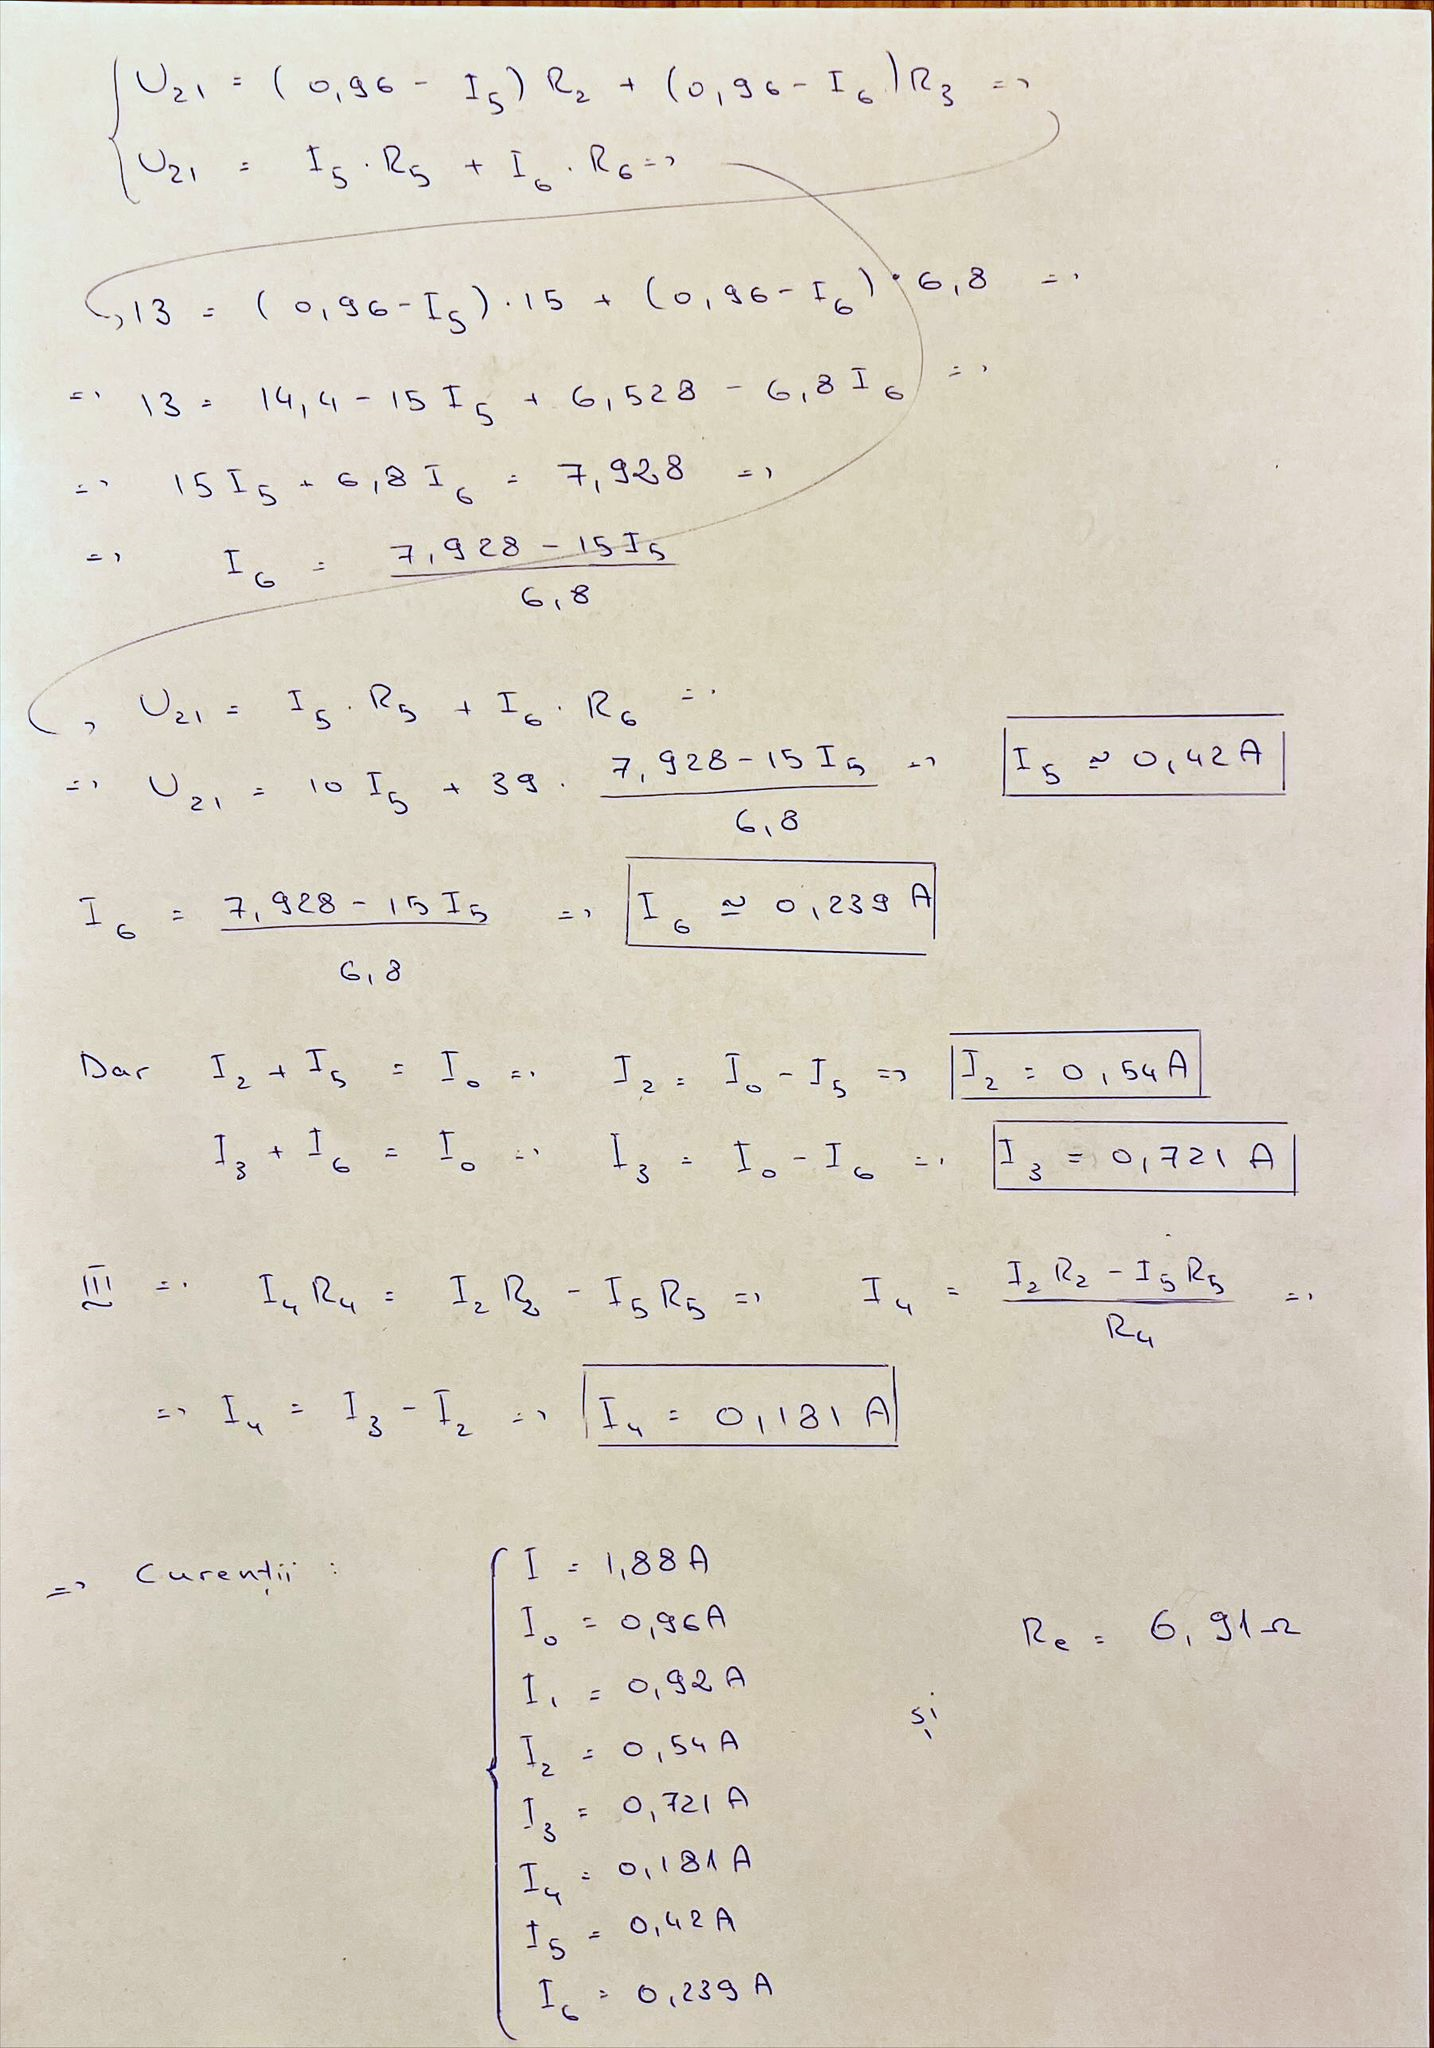 U21 = (0,96 - I5) R2 + (0,96 - I6) R3 =>
U21 = I5 · R5 + I6 · R6 =>
13 = (0,96 - I5) · 15 + (0,96 - I6) · 6,8 =>
=> 13 = 14,4 - 15 I5 + 6,528 - 6,8 I6 =>
=> 15 I5 + 6,8 I6 = 7,928 =>
=> I6 = (7,928 - 15 I5) / 6,8
U21 = I5 · R5 + I6 · R6 =>
=> U21 = 10 I5 + 39 · (7,928 - 15 I5) / 6,8 => I5 ≃ 0,42 A
I6 = (7,928 - 15 I5) / 6,8 => I6 ≃ 0,239 A
Dar I2 + I5 = I0 => I2 = I0 - I5 => I2 = 0,54 A
I3 + I6 = I0 => I3 = I0 - I6 => I3 = 0,721 A
III => I4 R4 = I2 R2 - I5 R5 => I4 = (I2 R2 - I5 R5) / R4 =>
=> I4 = I3 - I2 => I4 = 0,181 A
=> Curenții :
I = 1,88 A
I0 = 0,96 A
I1 = 0,92 A
I2 = 0,54 A
I3 = 0,721 A
I4 = 0,181 A
I5 = 0,42 A
I6 = 0,239 A
și
Re = 6,91 Ω